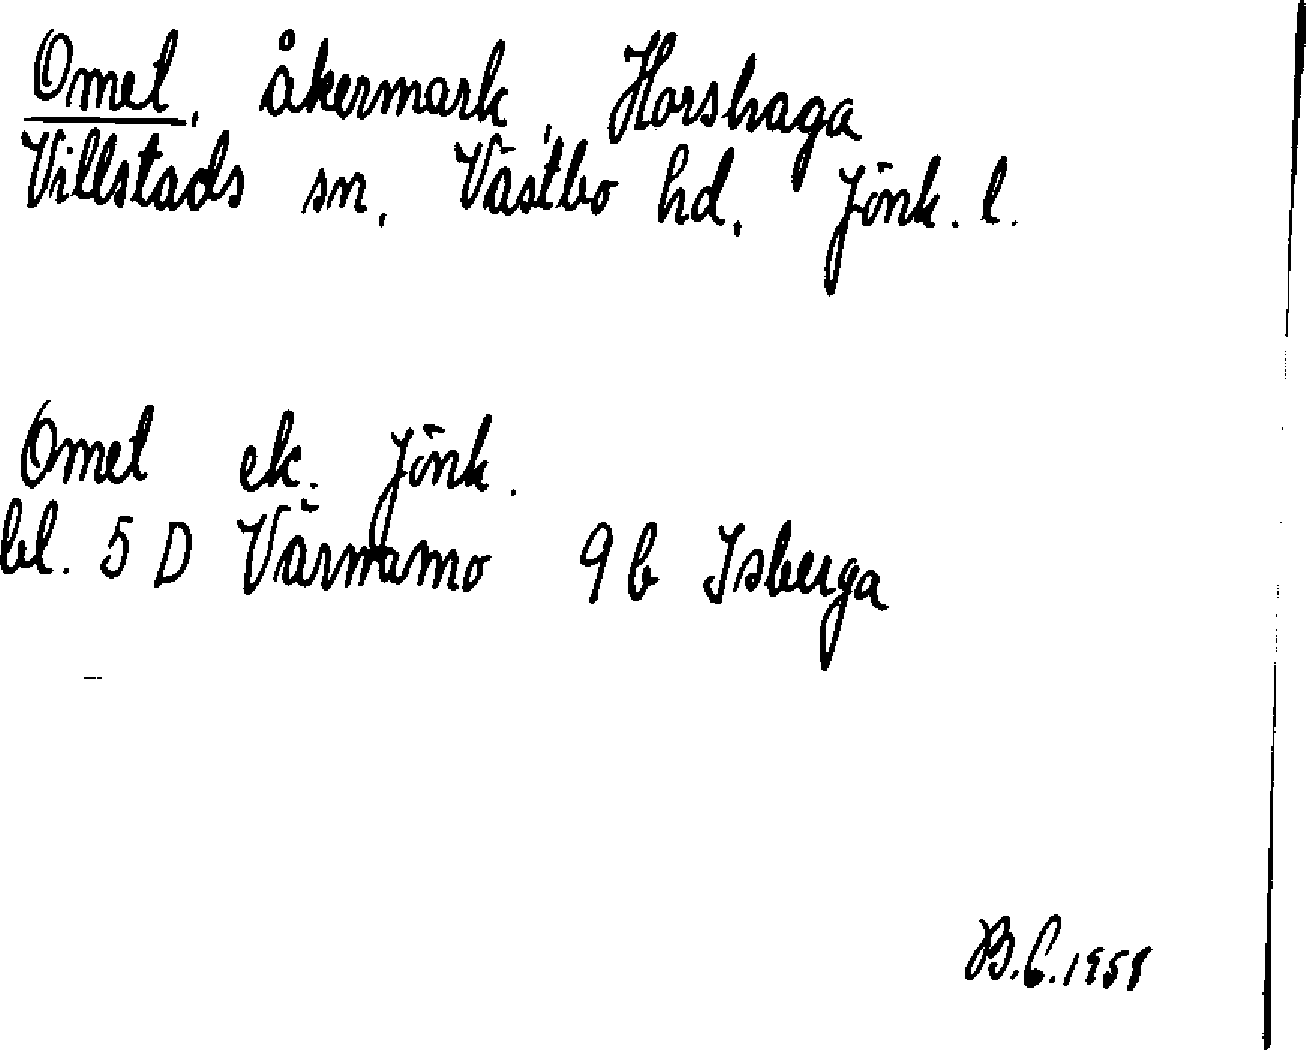 Omet, åkermark, Horshaga
Villstads sn, Västbo hd, Jönk. l.
Omet ek. Jönk.
bl. 5 D Värnamo 9 b Isberga
B.E. 1958